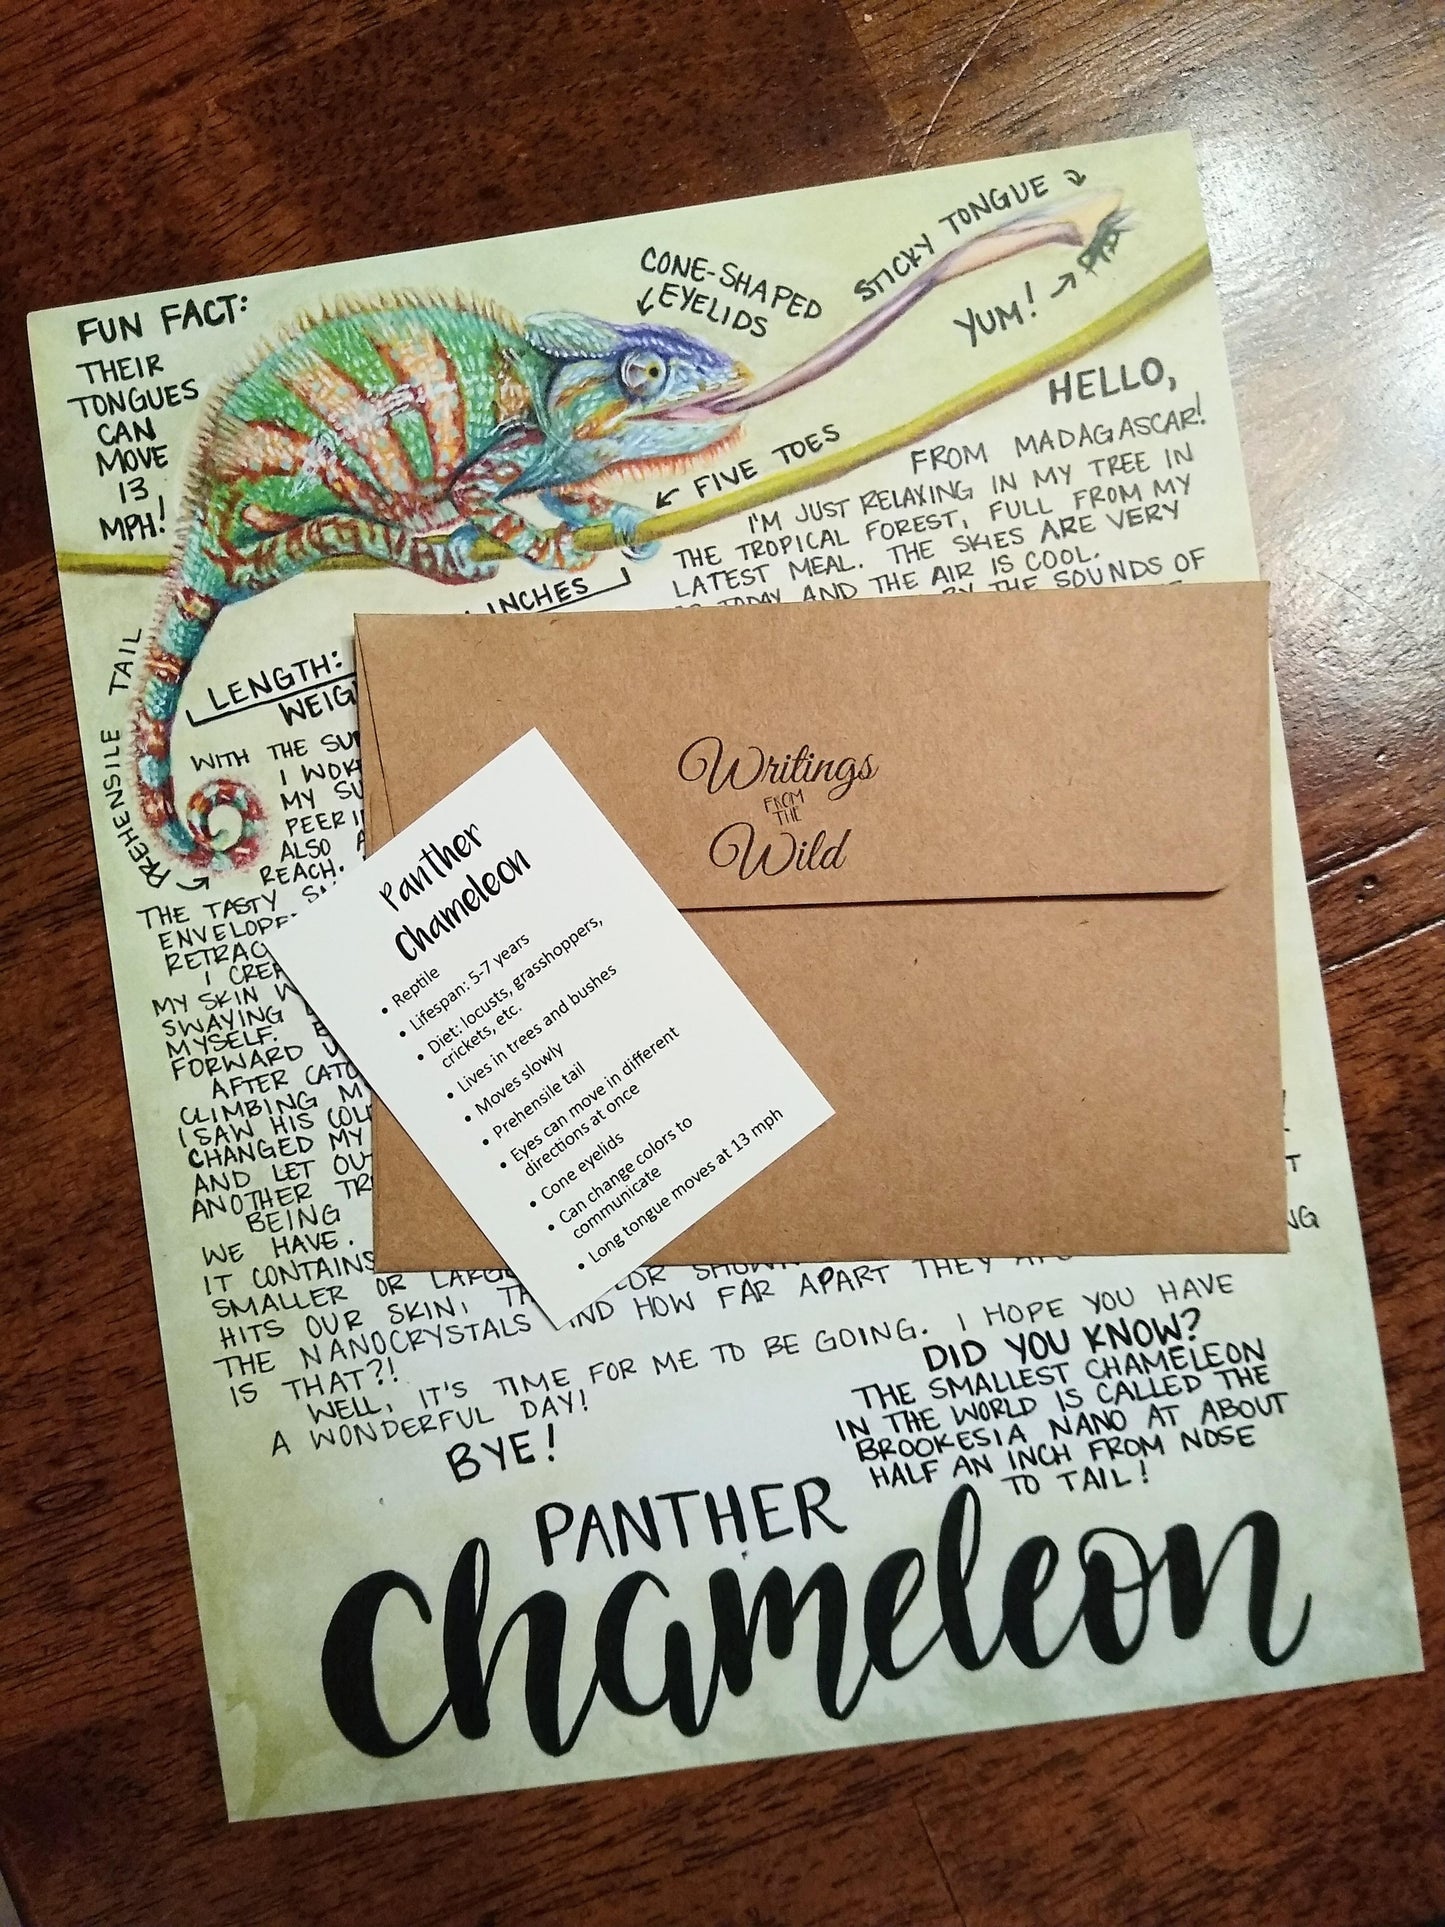 FUN FACT:
THEIR
TONGUES
CAN
MOVE
13
MPH!
CONE-SHAPED
EYELIDS
STICKY TONGUE
YUM!
FIVE TOES
PREHENSILE TAIL
INCHES
LENGTH:
HELLO,
FROM MADAGASCAR!
I'M JUST RELAXING IN MY TREE IN
THE TROPICAL FOREST, FULL FROM MY
LATEST MEAL. THE SKIES ARE VERY
TODAY AND THE AIR IS COOL.
BY THE SOUNDS OF
WITH THE
I
MY
ALSO
REACH.
THE TASTY
I
MY SKIN
SWAYING
MYSELF.
FORWARD
AFTER
CLIMBING
I SAW HIS
CHANGED MY
AND LET
ANOTHER
BEING
WE HAVE.
IT CONTAINS
SMALLER OR
HITS OUR SKIN,
THE NANOCRYSTALS AND HOW FAR APART THEY
IS THAT?!
WELL, IT'S TIME FOR ME TO BE GOING. I HOPE YOU HAVE
A WONDERFUL DAY!
BYE!
DID YOU KNOW?
THE SMALLEST CHAMELEON
IN THE WORLD IS CALLED THE
BROOKESIA NANO AT ABOUT
HALF AN INCH FROM NOSE
TO TAIL!
PANTHER
Chameleon
Writings
FROM
THE
Wild
Panther
Chameleon
• Reptile
• Lifespan: 5-7 years
• Diet: locusts, grasshoppers,
crickets, etc.
• Lives in trees and bushes
• Moves slowly
• Prehensile tail
• Eyes can move in different
directions at once
• Cone eyelids
• Can change colors to
communicate
• Long tongue moves at 13 mph